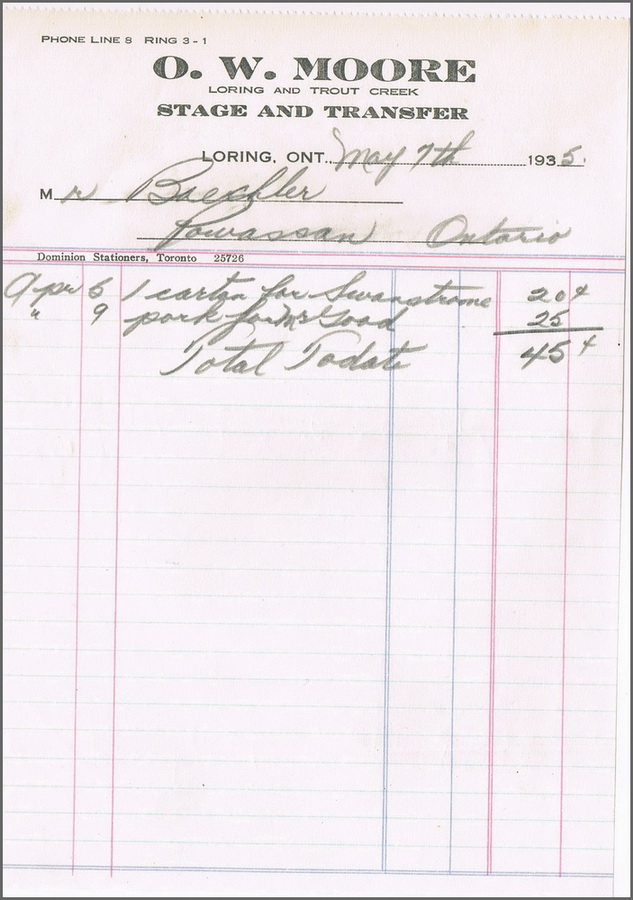 PHONE LINE 8 RING 3 - 1
O. W. MOORE
LORING AND TROUT CREEK
STAGE AND TRANSFER
LORING, ONT., May 7th 1935.
Mr Baechler
Powassan Ontario
Dominion Stationers, Toronto 25726
Apr 6 1 carton for Swanstrome 20¢
" 9 pork for Mr Good 25
Total Todate 45¢